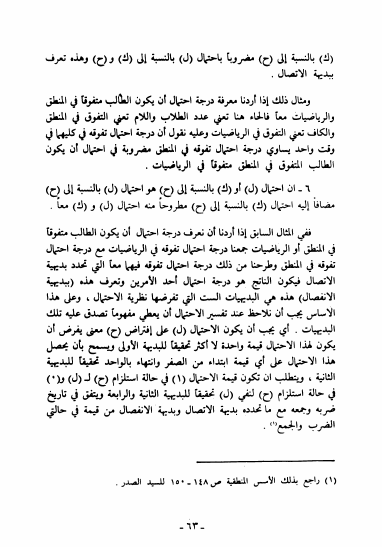 (ك) بالنسبة إلى (ح) مضروباً باحتمال (ل) بالنسبة إلى (ك) و(ح) وهذه تعرف
ببديهة الاتصال .
ومثال ذلك إذا أردنا معرفة درجة احتمال أن يكون الطالب متفوقاً في المنطق
والرياضيات معاً فالحاء هنا تعني عدد الطلاب واللام تعني التفوق في المنطق
والكاف تعني التفوق في الرياضيات وعليه نقول أن درجة احتمال تفوقه في كليهما في
وقت واحد يساوي درجة احتمال تفوقه في المنطق مضروبة في احتمال أن يكون
الطالب المتفوق في المنطق متفوقاً في الرياضيات .
٦ - ان احتمال (ل) أو (ك) بالنسبة إلى (ح) هو احتمال (ل) بالنسبة إلى (ح)
مضافاً إليه احتمال (ك) بالنسبة إلى (ح) مطروحاً منه احتمال (ل) و (ك) معاً .
ففي المثال السابق إذا أردنا أن نعرف درجة احتمال أن يكون الطالب متفوقاً
في المنطق أو الرياضيات جمعنا درجة احتمال تفوقه في الرياضيات مع درجة احتمال
تفوقه في المنطق وطرحنا من ذلك درجة احتمال تفوقه فيهما معاً التي تحدد بديهية
الاتصال فيكون الناتج هو درجة احتمال أحد الأمرين وتعرف هذه (ببديهية
الانفصال) هذه هي البديهيات الست التي تفرضها نظرية الاحتمال ، وعلى هذا
الاساس يجب أن نلاحظ عند تفسير الاحتمال أن يعطي مفهوماً تصدق عليه تلك
البديهيات . أي يجب أن يكون الاحتمال (ل) على إفتراض (ح) معنى يفرض أن
يكون لهذا الاحتمال قيمة واحدة لا أكثر تحقيقاً للبديهة الأولى ويسمح بأن يحصل
هذا الاحتمال على أي قيمة ابتداء من الصفر وانتهاء بالواحد تحقيقاً للبديهية
الثانية ، ويتطلب ان تكون قيمة الاحتمال (١) في حالة استلزام (ح) لـ (ل) و(٠)
في حالة استلزام (ح) لنفي (ل) تحقيقاً للبديهية الثانية والرابعة ويتفق في تاريخ
ضربه وجمعه مع ما تحدده بديهة الاتصال وبديهة الانفصال من قيمة في حالتي
الضرب والجمع(١) .
(١) راجع بذلك الأسس المنطقية ص ١٤٨ - ١٥٠ للسيد الصدر .
- ٦٣ -